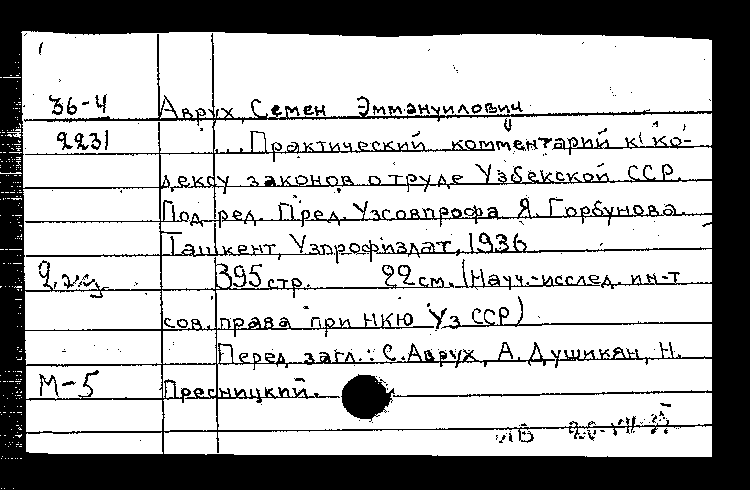 36-4 Аврух, Семен Эммануилович
2231 ... Практический комментарий к ко-
дексу законов о труде Узбекской ССР.
Под ред. Пред. Узсовпрофа Я. Горбунова.
Ташкент, Узпрофиздат, 1936
2 экз. 395 стр. 22 см. (Науч.-исслед. ин-т
сов. права при НКЮ Уз ССР)
Перед загл.: С. Аврух, А. Душикян, Н.
М-5 Пресницкий.